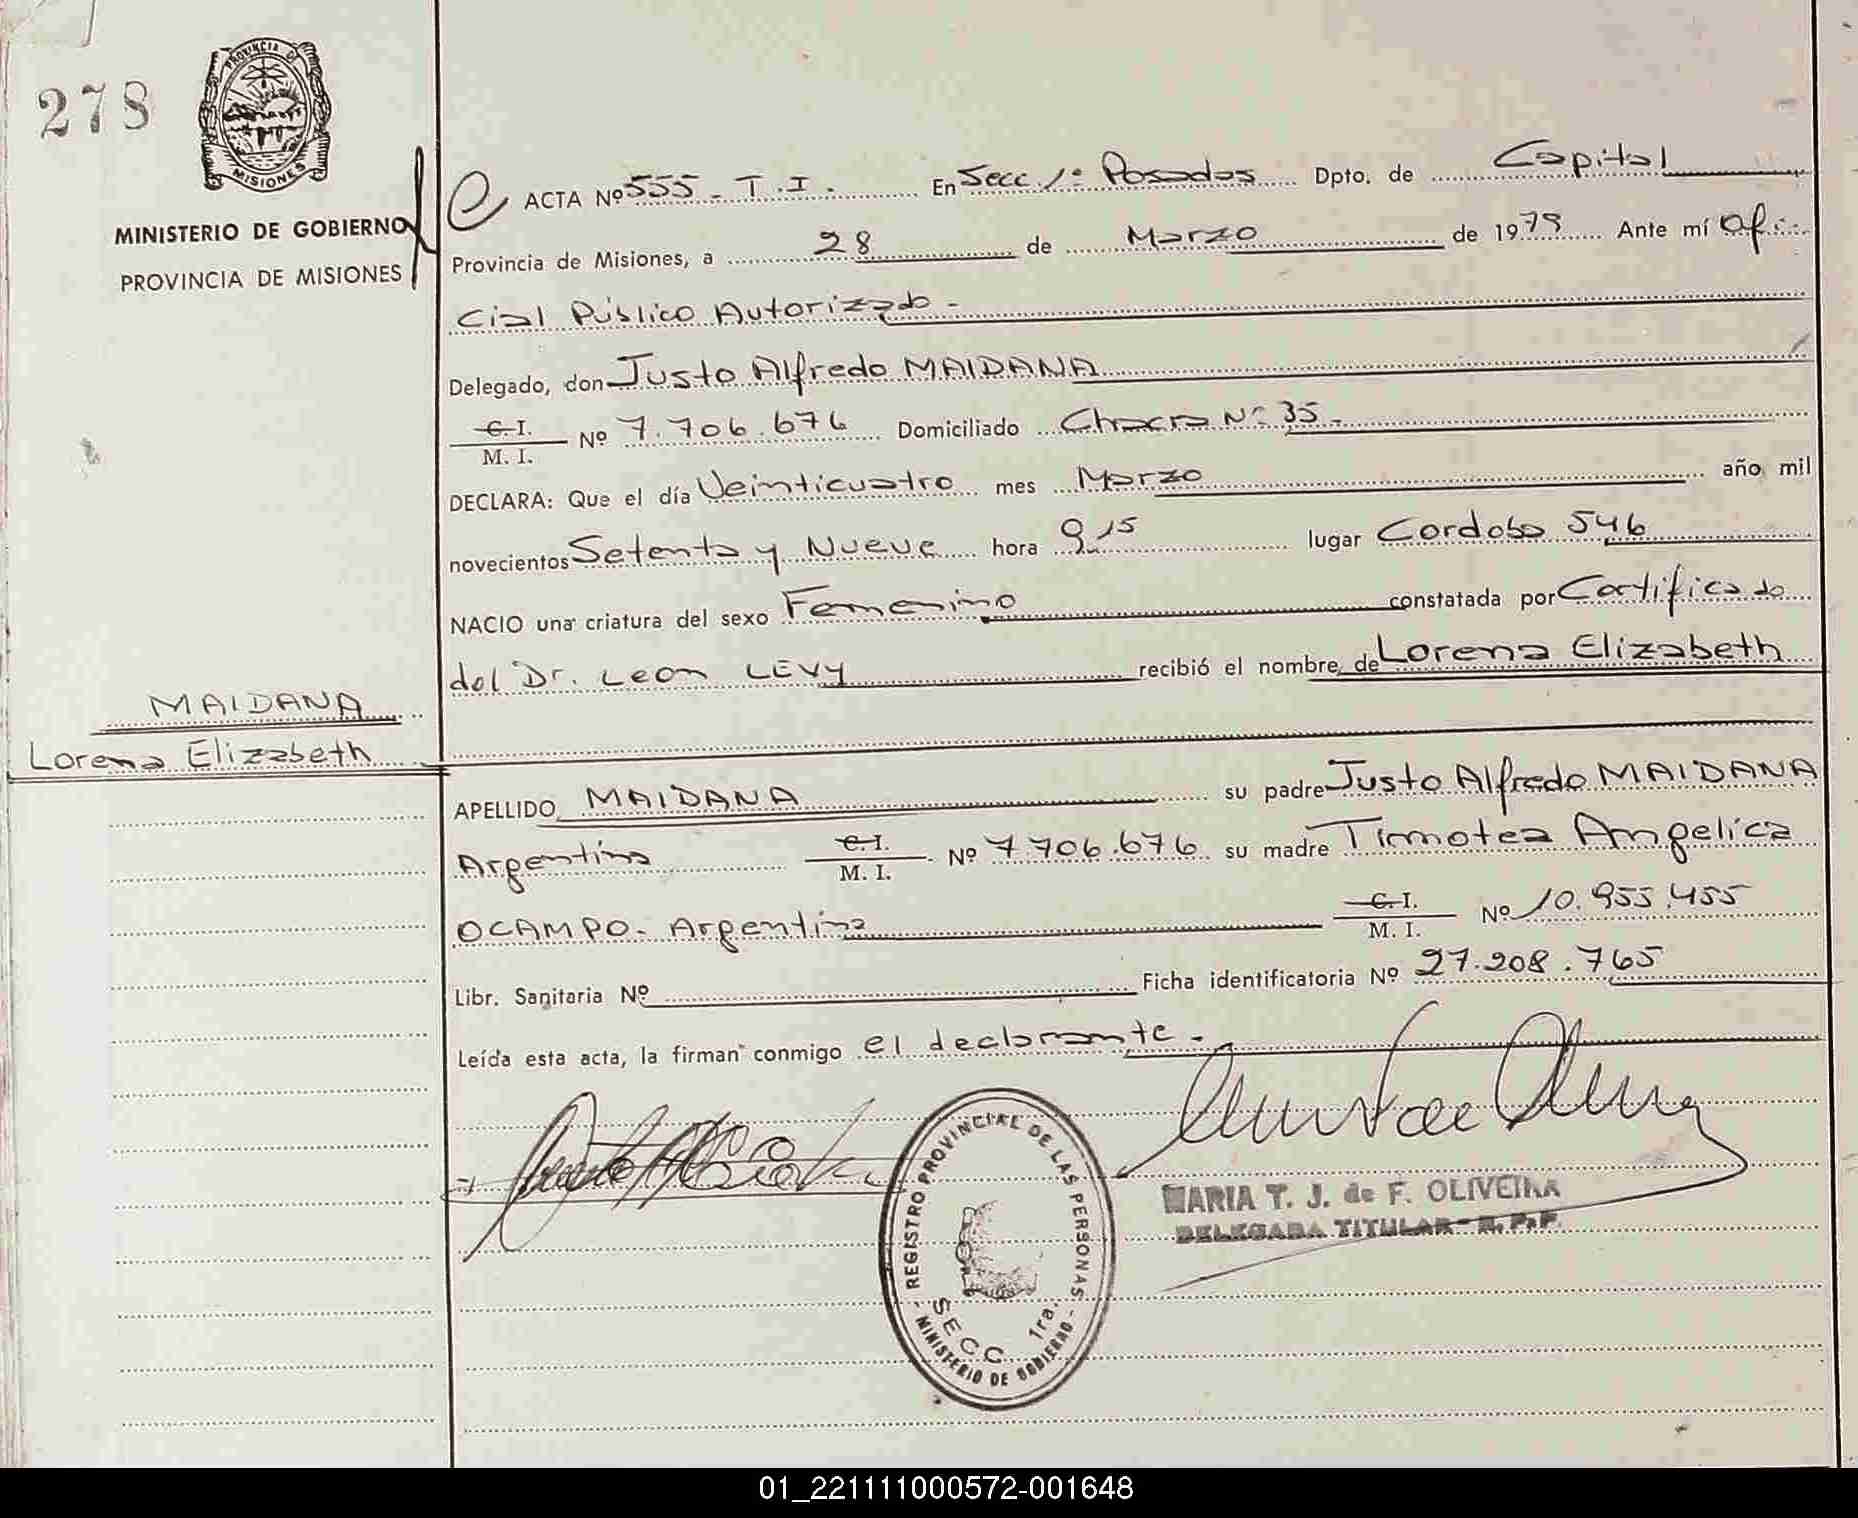 278
PROVINCIA DE
MISIONES
MINISTERIO DE GOBIERNO
PROVINCIA DE MISIONES
ACTA Nº 555 - T.I. En Secc. 1º Posadas Dpto. de Capital
Provincia de Misiones, a 28 de Marzo de 1979 Ante mí Ofi
cial Público Autorizado -
Delegado, don Justo Alfredo MAIDANA
C. I.
M. I. Nº 7.706.676 Domiciliado Chacra Nº 35 -
DECLARA: Que el día Veinticuatro mes Marzo año mil
novecientos Setenta y Nueve hora 9.15 lugar Cordoba 546
NACIO una criatura del sexo Femenino constatada por Certificado
del Dr. Leon LEVY recibió el nombre de Lorena Elizabeth
MAIDANA
Lorena Elizabeth
APELLIDO MAIDANA su padre Justo Alfredo MAIDANA
Argentino C. I. M. I. Nº 7.706.676 su madre Timotea Angelica
OCAMPO - Argentina C. I. M. I. Nº 10.955.455
Libr. Sanitaria Nº Ficha identificatoria Nº 27.208.765
Leída esta acta, la firman conmigo el declarante -
REGISTRO PROVINCIAL DE LAS PERSONAS
- MINISTERIO DE GOBIERNO -
SECC. 1ra.
MARIA T. J. de F. OLIVEIRA
DELEGADA TITULAR - R. P. P.
01_221111000572-001648